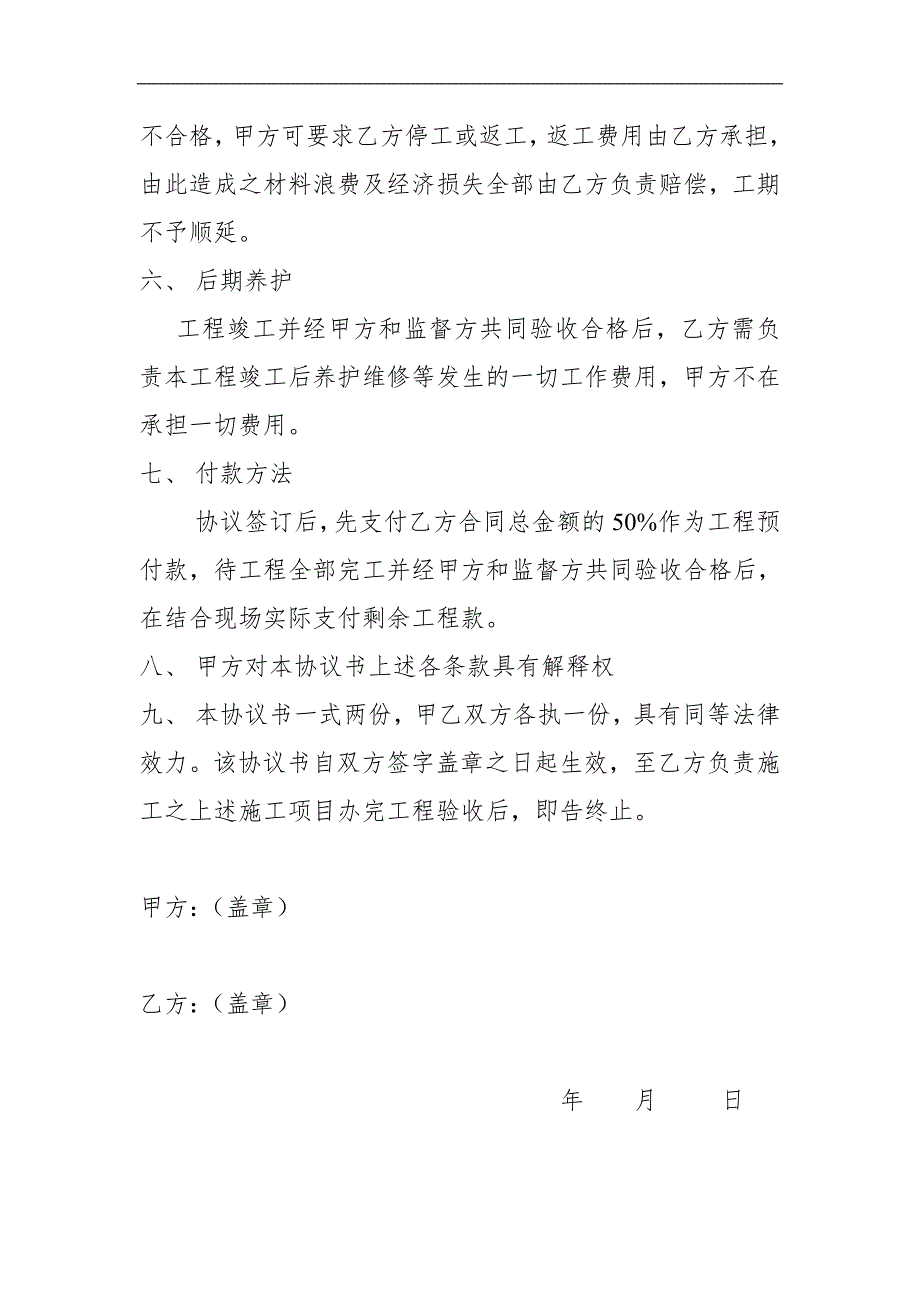 不合格，甲方可要求乙方停工或返工，返工费用由乙方承担，
由此造成之材料浪费及经济损失全部由乙方负责赔偿，工期
不予顺延。
六、 后期养护
工程竣工并经甲方和监督方共同验收合格后，乙方需负
责本工程竣工后养护维修等发生的一切工作费用，甲方不在
承担一切费用。
七、 付款方法
协议签订后，先支付乙方合同总金额的 50%作为工程预
付款，待工程全部完工并经甲方和监督方共同验收合格后，
在结合现场实际支付剩余工程款。
八、 甲方对本协议书上述各条款具有解释权
九、 本协议书一式两份，甲乙双方各执一份，具有同等法律
效力。该协议书自双方签字盖章之日起生效，至乙方负责施
工之上述施工项目办完工程验收后，即告终止。
甲方：（盖章）
乙方：（盖章）
年 月 日